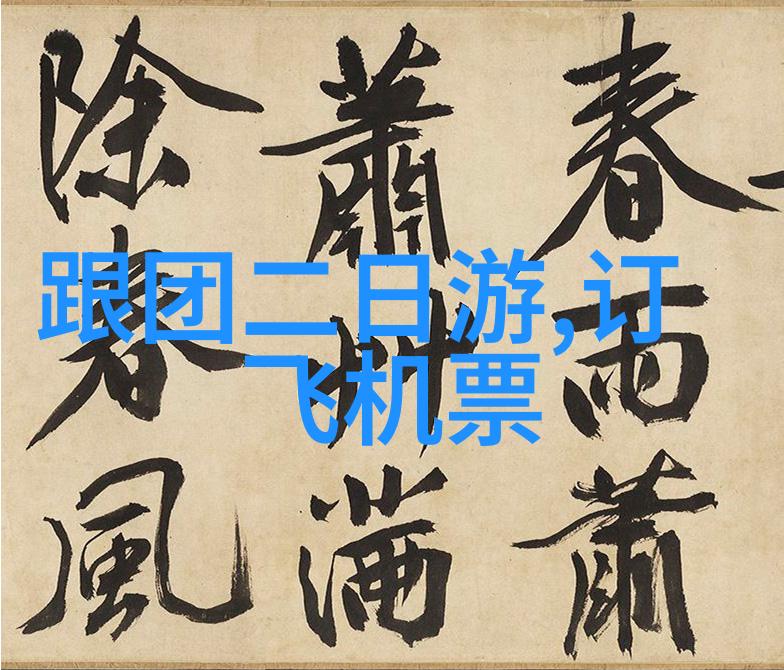 跟团二日游,订
飞机票
春雨蕭
蕭艸滿
除春風